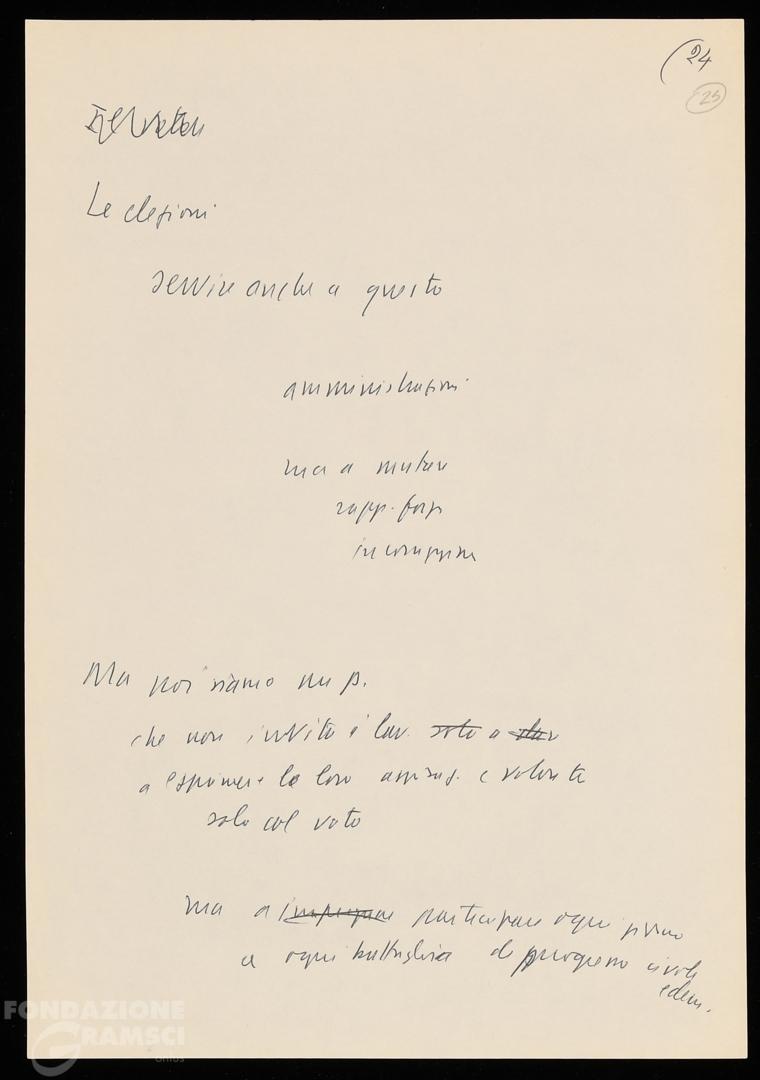 24
25
Le elezioni
servire anche a questo
amministrazioni
ma a mutare
rapp. forze
in
Ma noi siamo un p.
che non invita i lav. solo a
a esprimere le loro aspiraz. e volontà
solo col voto
ma a impegnare partecipare ogni giorno
a ogni battaglia di progresso civile
e dem.
FONDAZIONE
GRAMSCI
onlus